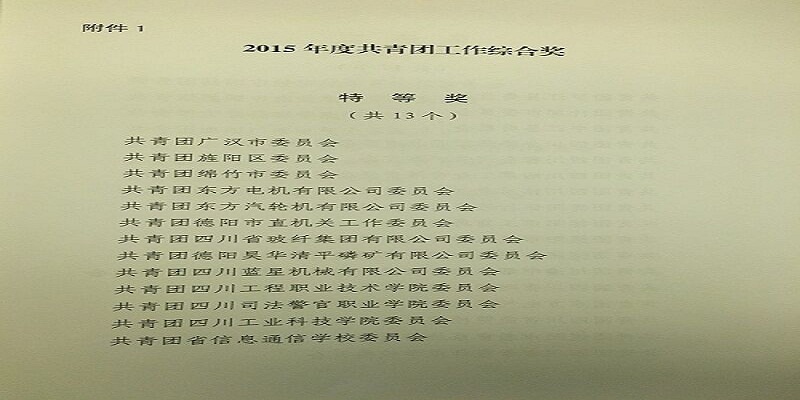 附件 1
2015 年度共青团工作综合奖
特 等 奖
（共 13 个）
共青团广汉市委员会
共青团旌阳区委员会
共青团绵竹市委员会
共青团东方电机有限公司委员会
共青团东方汽轮机有限公司委员会
共青团德阳市直机关工作委员会
共青团四川省玻纤集团有限公司委员会
共青团德阳昊华清平磷矿有限公司委员会
共青团四川蓝星机械有限公司委员会
共青团四川工程职业技术学院委员会
共青团四川司法警官职业学院委员会
共青团四川工业科技学院委员会
共青团省信息通信学校委员会